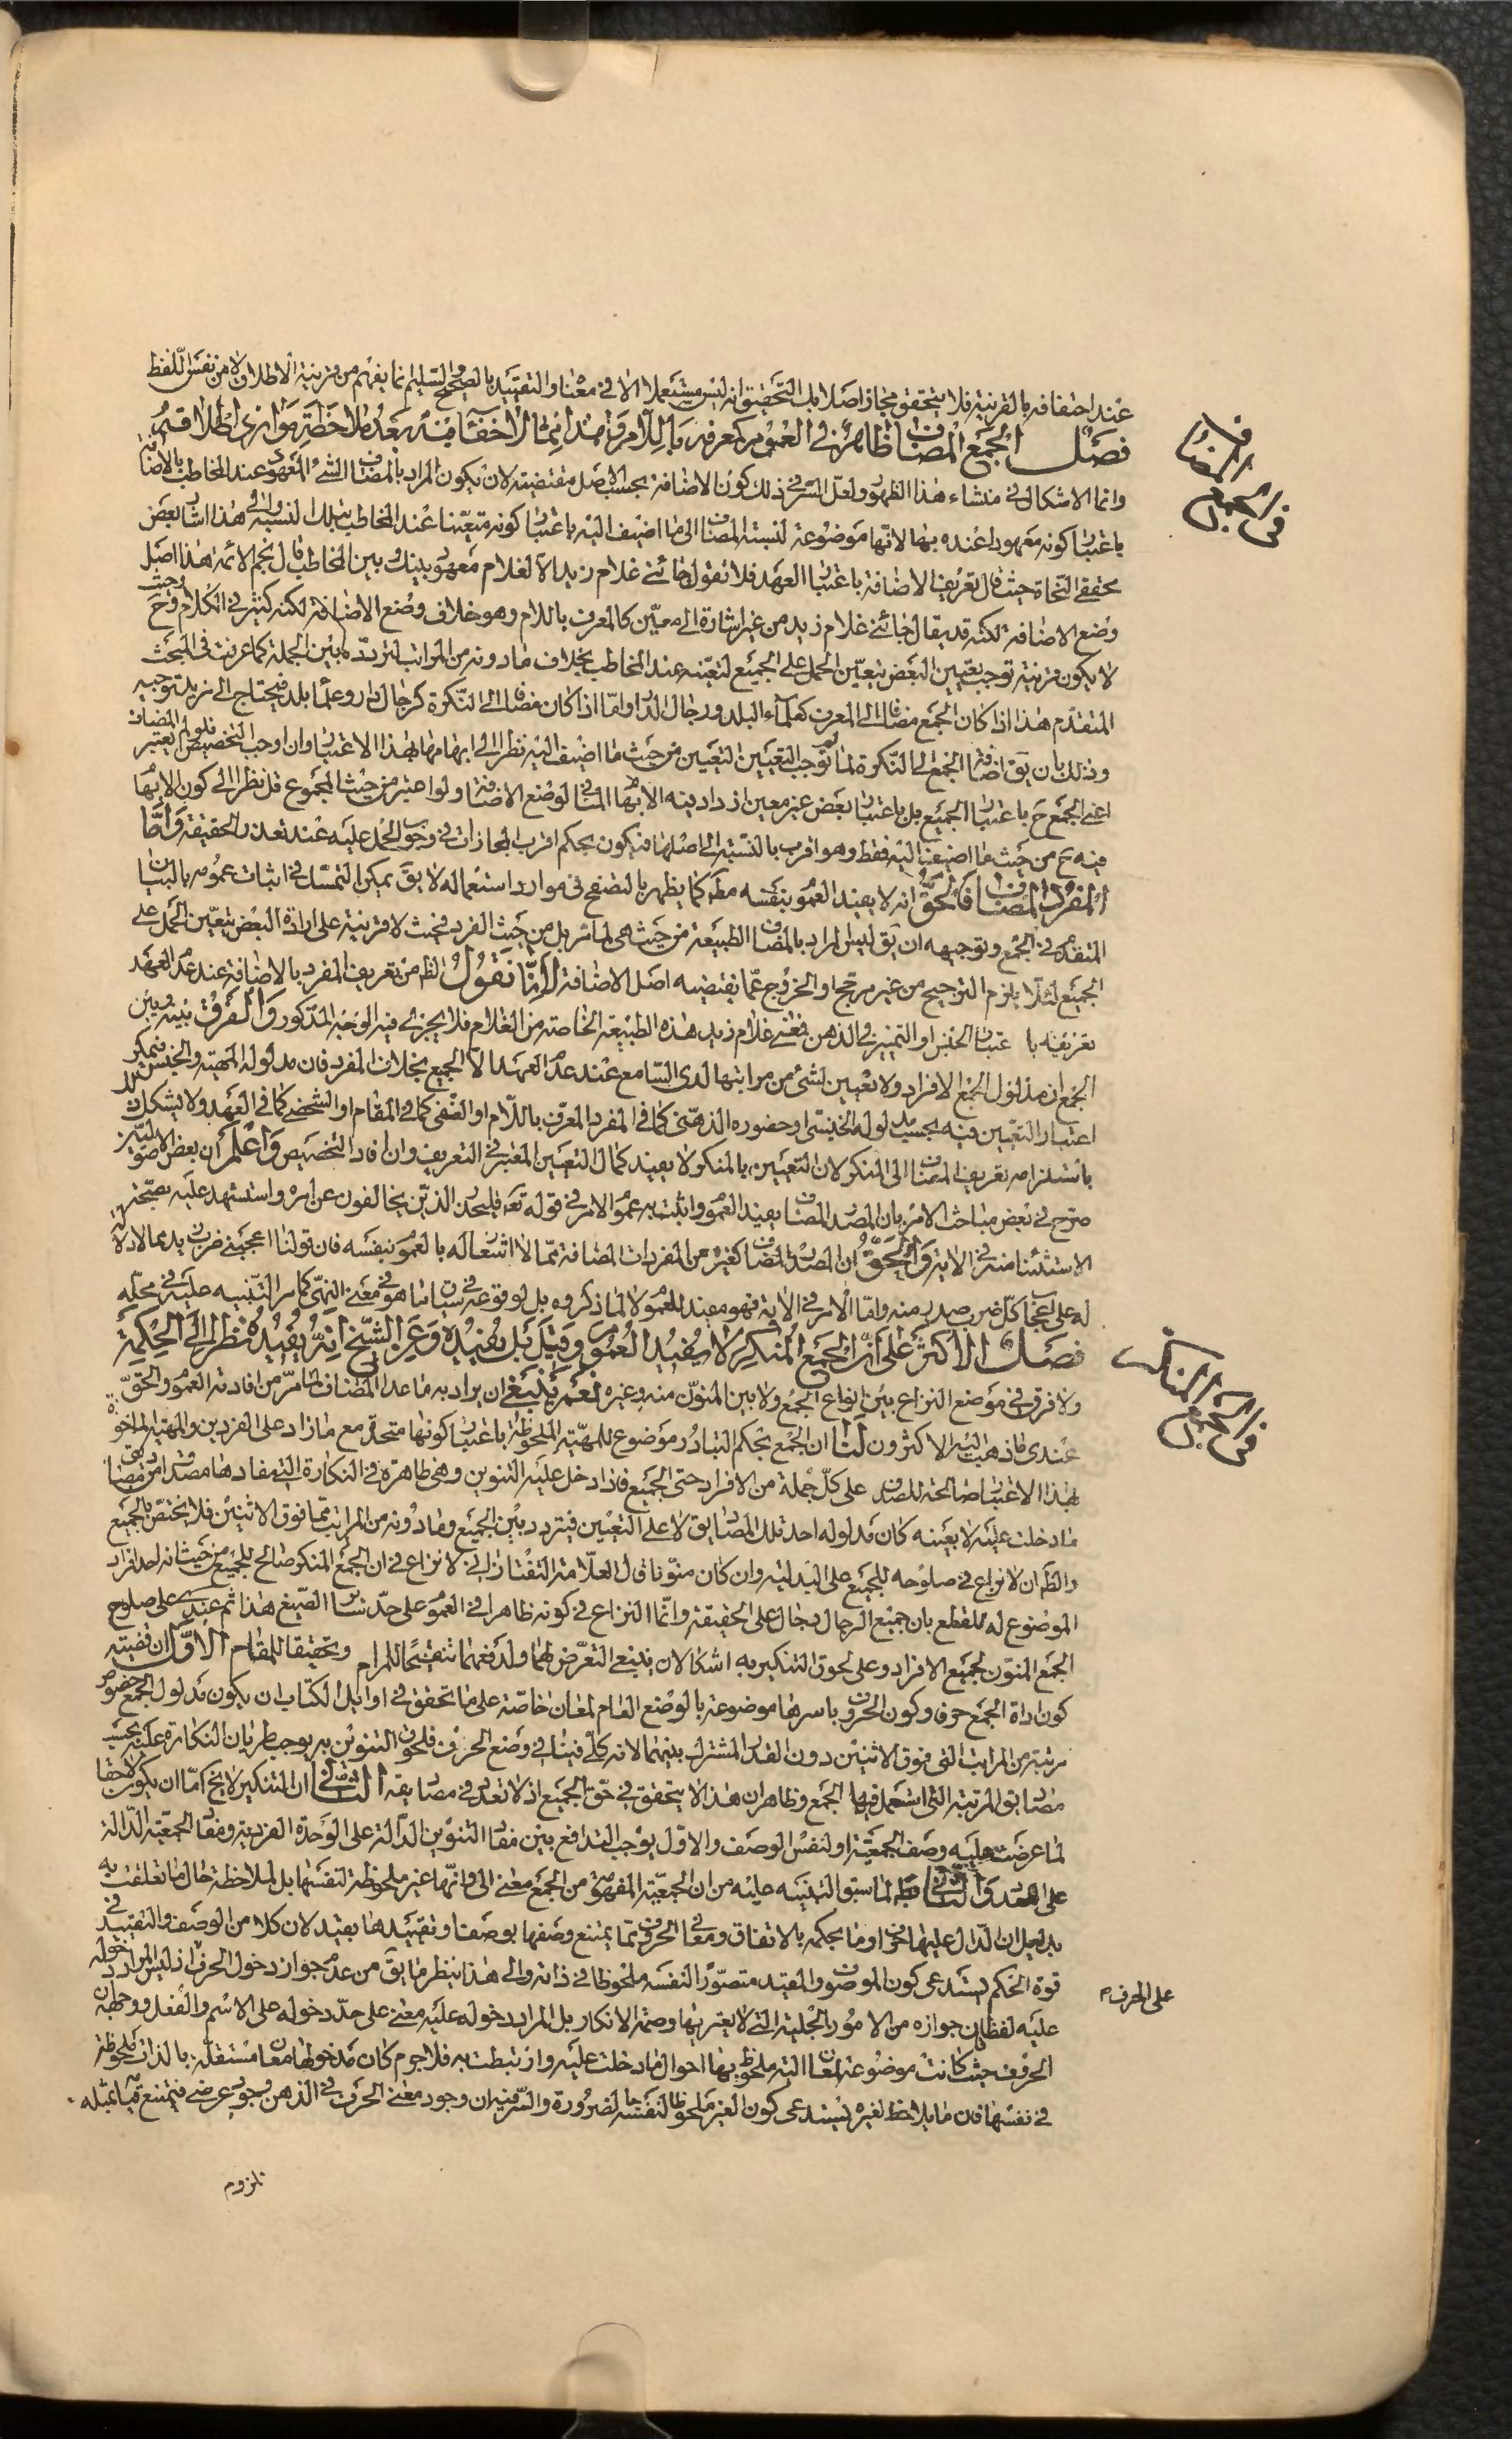 عند احتفافه بالقرينة فلا يتحقق مجاز اصلا بل التحقيق انه ليس مستعملا الا في معناه والتقييد بالصحيح والسليم انما يفهم من قرينة الاطلاق لا من نفس اللفظ
فصل الجمع المضاف ظاهر في العموم كمعرفه باللام وهذا مما لا خفاء فيه بعد ملاحظة موارد اطلاقه
وانما الاشكال في منشاء هذا الظهور ولعل السر في ذلك كون الاضافة بحسب الاصل مقتضية لان يكون المراد بالمضاف الشئ المعهود عند المخاطب بالاضافة
باعتبار كونه معهودا عنده بها لانها موضوعة لنسبة المضاف الى ما اضيف اليه باعتبار كونه متعينا عند المخاطب بتلك النسبة والى هذا اشار بعض
محققي النحاة حيث قال تعريف الاضافة باعتبار العهد فلا تقول جائني غلام زيد الا لغلام معهود بينك وبين المخاطب قال نجم الائمة هذا اصل
وضع الاضافة لكنه قد يقال جائني غلام زيد من غير اشارة الى معين كالمعرف باللام وهو خلاف وضع الاضافة لكنه كثير في الكلام وح حيث
لا يكون قرينة توجب تعيين البعض يتعين الحمل على الجميع لتعينه عند المخاطب بخلاف ما دونه من المراتب لتردده بين الجملة كما عرفت في المبحث
المتقدم هذا اذا كان الجمع مضافا الى المعرف كعلماء البلد ورجال الدار واما اذا كان مضافا الى النكرة كرجال دار وعلماء بلد فيحتاج الى مزيد توجيه
وذلك بان يق اضافة الجمع الى النكرة لما توجب التعيين لتعيين من حيث ما اضيف اليه نظرا الى ابهامها بهذا الاعتبار وان اوجب التخصيص فلو لم يعتبر المضاف
اعني الجمع ح باعتبار الجميع بل باعتبار بعض غير معين ازداد فيه الابهام المنافي لوضع الاضافة ولو اعتبر من حيث المجموع قل نظرا الى كون الابهام
فيه ح من حيث ما اضيف اليه فقط وهو اقرب بالنسبة الى اصلها فيكون بحكم اقرب المجازات في وجوب الحمل عليه عند تعذر الحقيقة واما
المفرد المضاف فالحق انه لا يفيد العموم بنفسه مط كما يظهر بالتصفح في موارد استعماله لا يق يمكن التمسك في اثبات عمومه بالبيان
المتقدم في الجمع وتوجيهه ان يق ليس المراد بالمضاف الطبيعة من حيث هي لما مر بل من حيث الفرد فحيث لا قرينة على ارادة البعض يتعين الحمل على
الجميع لئلا يلزم الترجيح من غير مرجح او الخروج عما يقتضيه اصل الاضافة لانا نقول الظ من تعريف المفرد بالاضافة عند عدم العهد
تعريفه باعتبار الجنس او التميز في الذهن فمعنى غلام زيد هذه الطبيعة الخاصة من الغلام فلا يجري فيه الوجه المذكور والفرق بينه وبين
الجمع ان مدلول الجمع الافراد ولا تعيين لشئ من مراتبها لدى السامع عند عدم العهد الا الجميع بخلاف المفرد فان مدلوله المهية والجنس فيمكن
اعتبار التعيين فيه بحسب مدلوله الجنسي او حضوره الذهني كما في المفرد المعرف باللام او الصنفي كما في المقام او الشخصي كما في العهد ولا يشكل ذلك
باستلزامه تعريف المضاف الى المنكر لان التعيين بالمنكر لا يفيد كمال التعيين المعتبر في التعريف وان افاد التخصيص واعلم ان بعض الاصوليين
صرح في بعض مباحث الامر بان المصدر المضاف يفيد العموم واثبت به عموم الامر في قوله تعه فليحذر الذين يخالفون عن امره واستشهد عليه بصحة
الاستثناء منه في الاية والحق ان المصدر المضاف كغيره من المفردات المضافة مما لا اشعار له بالعموم بنفسه فان قولنا اعجبني ضرب زيد مما لا دلالة
له على اعجاب كل ضرب صدر منه واما الامر في الاية فهو مفيد للعموم لا لما ذكروه بل لوقوعه في سياق ما هو في معنى النهي كما مر التنبيه عليه في محله
فصل الاكثر على ان الجمع المنكر لا يفيد العموم وقيل بل يفيده وعن الشيخ انه يفيده نظرا الى الحكمة
ولا فرق في موضع النزاع بين انواع الجمع ولا بين المنون منه وغيره نعم ينبغي ان يراد به ما عدا المضاف لما مر من افادته العموم والحق
عندي ما ذهب اليه الاكثرون لنا ان الجمع بحكم التبادر موضوع للمهية الملحوظة باعتبار كونها متحدة مع ما زاد على الفردين والمهية الماخوذة
بهذا الاعتبار صالحة للصدق على كل جملة من الافراد حتى الجميع فاذا دخل عليه التنوين وهي ظاهرة في النكارة التي مفادها مصداق من مصاديق
ما دخلت عليه لا بعينه كان مدلوله احد تلك المصاديق لا على التعيين فيتردد بين الجميع وما دونه من المراتب مما فوق الاثنين فلا يختص بالجميع
والظ ان لا نزاع في صلوحه للجميع على البدلية وان كان منونا قال العلامة التفتازاني لا نزاع في ان الجمع المنكر صالح للجميع من حيث انه احد افراد
الموضوع له للقطع بان جميع الرجال رجال على الحقيقة وانما النزاع في كونه ظاهرا في العموم على حد سائر الصيغ هذا ثم عندي على صلوح
الجمع المنون لجميع الافراد وعلى لحوق التنكير به اشكالان ينبغي التعرض لهما ولدفعهما تنقيحا للمرام وتحقيقا للمقام الاول ان قضية
كون اداة الجمع حرفا وكون الحروف باسرها موضوعة بالوضع العام لمعان خاصة على ما تحقق في اوايل الكتاب ان يكون مدلول الجمع خصوص
مرتبة من المراتب التي فوق الاثنين دون القدر المشترك بينهما لانه كلي فينافي وضع الحرف فلحوق التنوين به يوجب طريان النكارة عليه بحسب
مصاديق المرتبة التي استعمل فيها الجمع وظاهر ان هذا لا يتحقق في حق الجميع اذ لا تعدد في مصاديقه الثاني ان التنكير لا يخ اما ان يكون لاحقا
لما عرضت عليه وصف الجمعية او لنفس الوصف والاول يوجب التدافع بين مفاد التنوين الدالة على الوحدة الفردية ومفاد الجمعية الدالة
على التعدد والثاني باطل لما سبق التنبيه عليه من ان الجمعية المفهومة من الجمع معنى الي وانها غير ملحوظة لنفسها بل لملاحظة حال ما تعلقت به
بدليل ان الدال عليها حرف او ما بحكمه بالاتفاق ومعاني الحروف مما يمتنع وصفها بوصف او تقييدها بقيد لان كلا من الوصف والتقييد في
قوة الحكم يستدعي كون الموصوف والمقيد متصورا لنفسه ملحوظا في ذاته والى هذا ينظر ما يق من عدم جواز دخول الحرف على الحرف اذ ليس المراد دخوله
عليه لفظا فان جوازه من الامور الجلية التي لا يعتريها وصمة الانكار بل المراد دخوله عليه معنى على حد دخوله على الاسم والفعل ووجهه ان
الحروف حيث كانت موضوعة لمعان الية ملحوظ بها احوال ما دخلت عليه وارتبطت به فلا جرم كان مدخولها معان مستقلة بالذات ملحوظة
في نفسها فان ما يلاحظ لغيره يستدعي كون الغير ملحوظا لنفسه بالضرورة والسر فيه ان وجود معنى الحرف في الذهن وجود عرضي فيمتنع قيامه بمثله
تلزوم
في الجمع المضاف
في الجمع المنكر
على الحرف